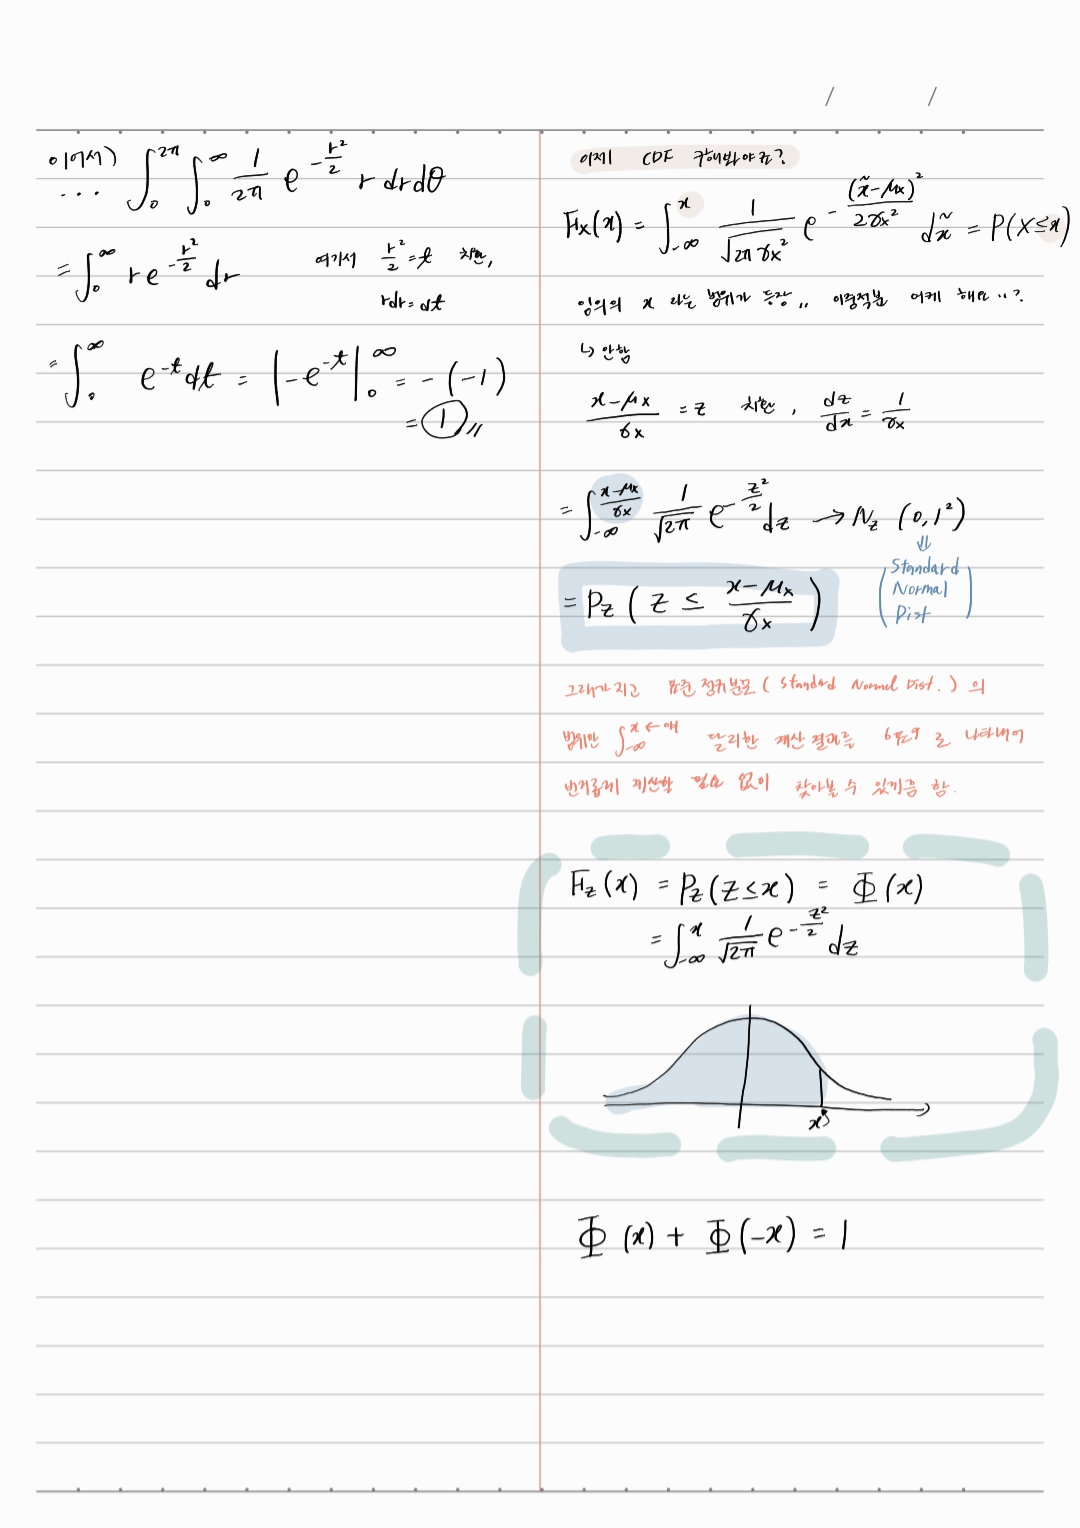 / /
이어서)
... ∫₀^2π ∫₀^∞ 1/2π e^(-r²/2) r dr dθ
= ∫₀^∞ r e^(-r²/2) dr 여기서 r²/2 = t 치환,
rdr = dt
= ∫₀^∞ e^-t dt = |-e^-t|₀^∞ = -(-1)
= 1 〃
이제 CDF 구해봐야죠?
Fx(x) = ∫_-∞^x 1/√(2πσx²) e^(-(x̃-μx)²/2σx²) dx̃ = P(X≤x)
임의의 x 라는 범위가 등장,, 이럼적분 어케 해요 ..?
↳ 안함
(x-μx)/σx = z 치환, dz/dx = 1/σx
= ∫_-∞^((x-μx)/σx) 1/√2π e^(-z²/2) dz → Nz (0, 1²)
⇓
(Standard
Normal
Dist)
= Pz ( Z ≤ (x-μx)/σx )
그래가지고 표준정규분포 ( Standard Normal Dist. ) 의
범위만 ∫_-∞^x ← 얘 달리한 계산 결과를 로 나타내어
번거롭게 계산할 필요 없이 찾아볼 수 있게끔 함.
Fz(x) = Pz(Z≤x) = Φ(x)
= ∫_-∞^x 1/√2π e^(-z²/2) dz
x
Φ(x) + Φ(-x) = 1